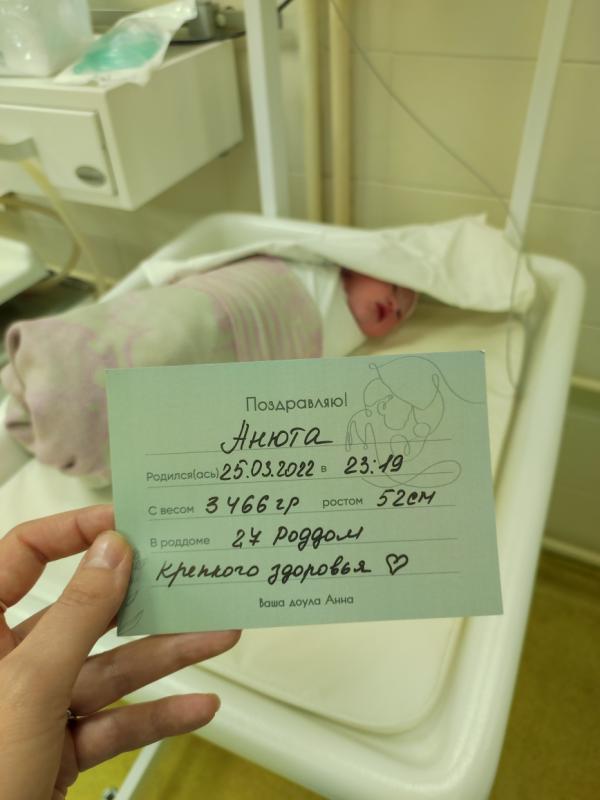 Поздравляю!
Анюта
Родился(ась) 25.03.2022 в 23:19
С весом 3466 гр ростом 52см
В роддоме 27 Роддом
Крепкого здоровья ♡
Ваша доула Анна